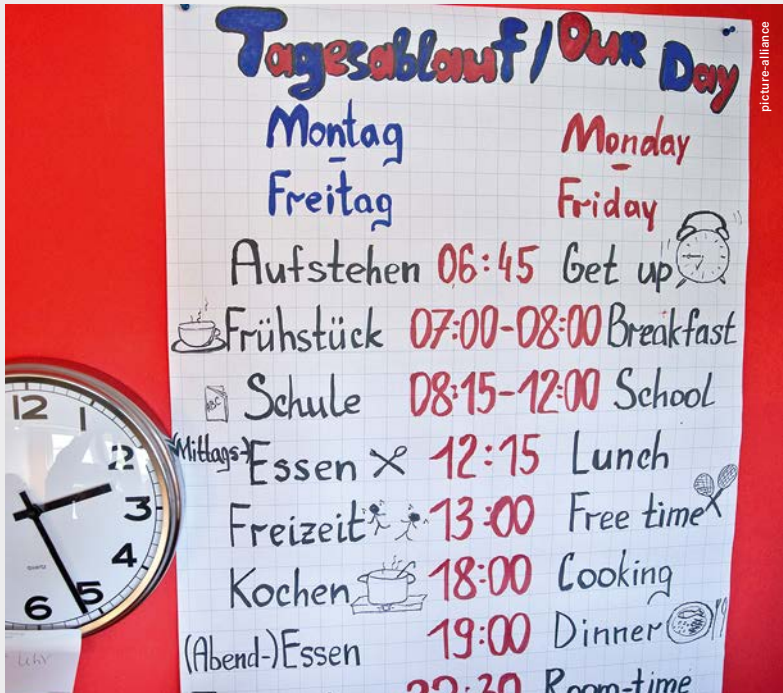 picture-alliance
Tagesablauf/Our Day
Montag Monday
-
Freitag Friday
Aufstehen 06:45 Get up
Frühstück 07:00-08:00 Breakfast
ABC Schule 08:15-12:00 School
(Mittags-)Essen 12:15 Lunch
Freizeit 13:00 Free time
Kochen 18:00 Cooking
(Abend-)Essen 19:00 Dinner
Room-time
12
1
2
3
4
5
6
Uhr